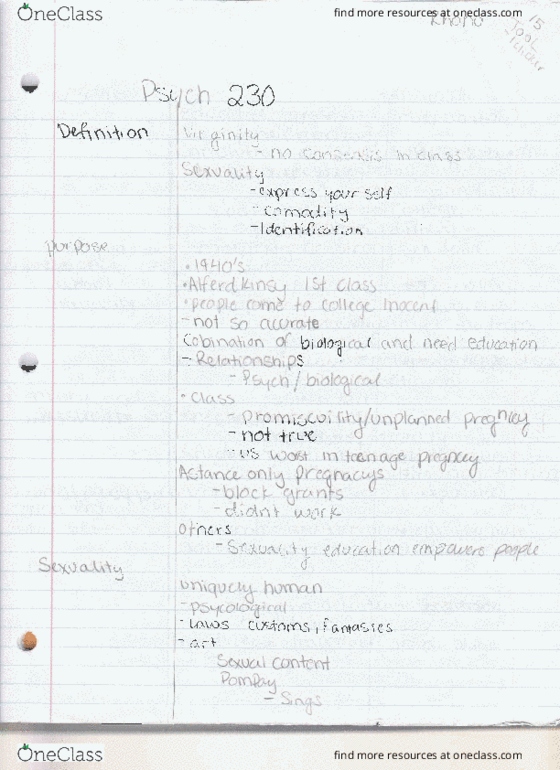 OneClass
find more resources at oneclass.com
15
Tool
Psych 230
Definition
Virginity
- no consensis in class
Sexuality
- express your self
- comodlity
- Identification
purpose
• 1940's
• Alferd kinsy 1st class
• people come to college inocent
- not so acurate
Cobination of biological and need education
- Relationships
- Psych/biological
• Class
- promiscuility/unplanned pregncy
- not true
- US worst in teenage pregncy
Astance only Pregnacys
- block grants
- didnt work
others
- Sexuality education empowers people
Sexuality
uniquely human
- psycological
- laws customs, fantasies
- art
Sexual content
Pompay
- Sings
OneClass
find more resources at oneclass.com